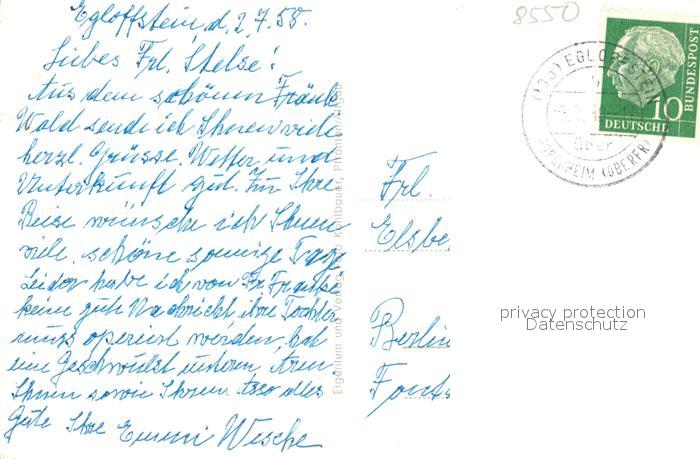 Egloffstein, d. 2.7.58.
Liebes Frl. Stelse!
Aus dem schönen Fränk.
Wald sende ich Ihnen viele
herzl. Grüsse. Wetter und
Unterkunft gut. Für Ihre
Reise wünsche ich Ihnen
viele schöne sonnige Tage
Leider habe ich von Fr.
keine gute Nachricht ihre Tochter
muss operiert werden, hat
eine Geschwulst
Ihnen sowie Ihrem alles
Gute Ihre Emmi Wesche
Eigentum und Verlag Kohlbauer,
8550
DEUTSCHE
BUNDESPOST
10
(13a) EGLOFFSTEIN
über
FORCHHEIM (OBERFR)
Frl.
Elsbe
Berlin
privacy protection
Datenschutz